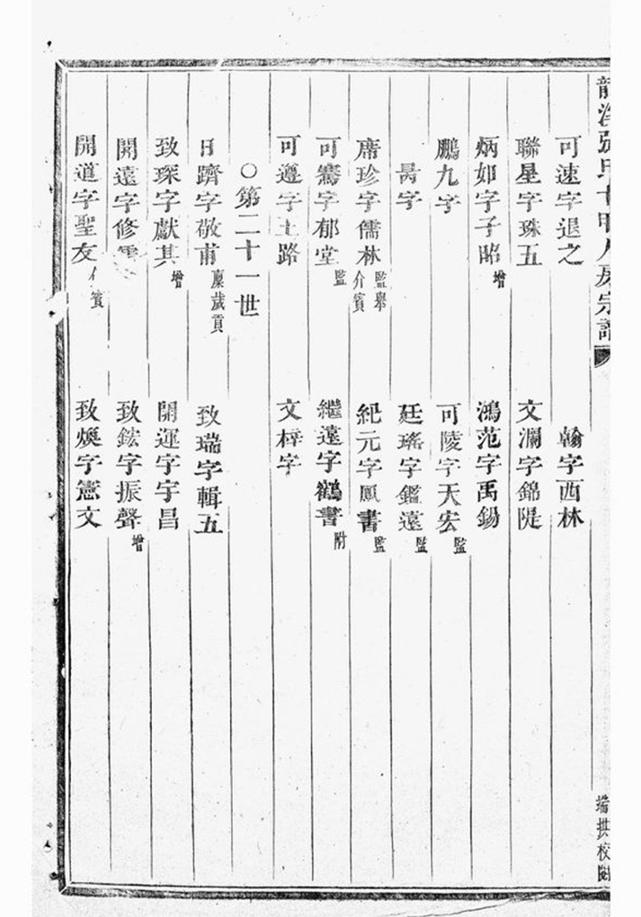 張氏 宗譜
可速字退之 翰字西林
聯星字珠五 文瀾字錦隄
炳如字子昭增 鴻范字禹錫
鵬九字 可陵字天宏監
字 廷瑤字鑑遠監
席珍字儒林監舉介賓 紀元字鳳書監
可騫字郁堂監 繼遠字鶴書附
可遵字 路 文梓字
○第二十一世
日躋字敬甫廩歲貢 致瑞字輯五
致琛字獻其增 開運字宇昌
開遠字修 致鋐字振聲增
開道字聖友介賓 致煥字憲文
端拱校閱